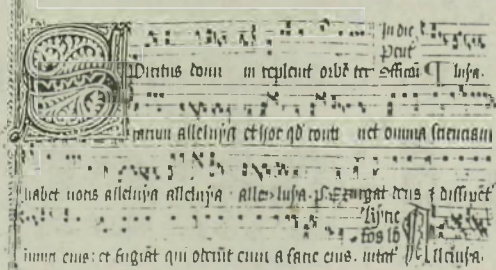 In die
Pent
Spiritus domi ni repleuit orbē ter officiū luya.
rarum alleluya et hoc qd conti net omnia scienciam
habet uocis alleluya alleluya alleluya. ps Exurgat deus & dissipēt
inimici eius: et fugiāt qui oderūt eum a facie eius. Alleluya.